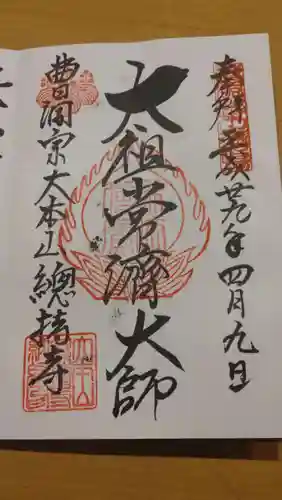 奉拝 平成廿九年四月九日
太祖常濟大師
曹洞宗大本山總持寺